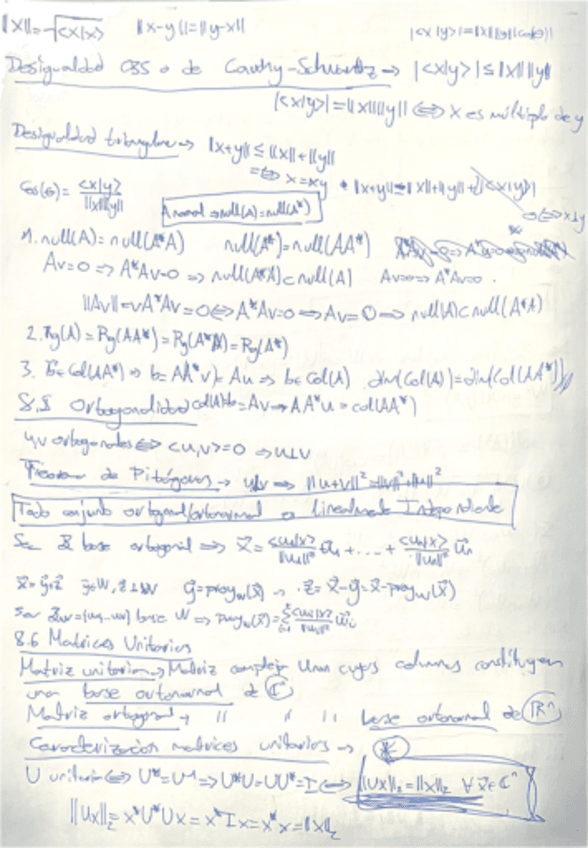 ||x||=√<x|x> ||x-y||=||y-x|| |<x|y>|=||x||||y|||cos(θ)|
Desigualdad CBS o de Cauchy-Schwartz → |<x|y>| ≤ ||x||||y||
|<x|y>|=||x||||y|| ⟺ x es múltiplo de y
Desigualdad triangular → ||x+y|| ≤ ||x||+||y||
cos(θ)= <x|y>/||x||||y||
A normal ⇒ null(A)=null(A*)
1. null(A)=null(A*A) null(A*)=null(AA*)
Av=0 ⇒ A*Av=0 ⇒ null(A*A)⊂null(A) Av=0 ⇒ A*Av=0.
||Av||=vA*Av=0 ⟺ A*Av=0 ⇒ Av=0 ⇒ null(A)⊂null(A*A)
2. Rg(A)=Rg(AA*)=Rg(A*A)=Rg(A*)
3. b∈Col(AA*) ⇒ b=AA*v=Au ⇒ b∈Col(A) dim(Col(A))=dim(Col(AA*))
8.5 Ortogonalidad
u,v ortogonales ⟺ <u,v>=0 ⇒ u⊥v
Teorema de Pitágoras → u⊥v ⇒ ||u+v||²=||v||²+||u||²
Todo conjunto ortogonal/ortonormal es linealmente Independiente
Sea B base ortogonal ⇒ x = <u₁|x>/||u₁||² u₁ + ... + <uₙ|x>/||uₙ||² uₙ
y∈W, z⊥W y=proy_W(x) → z=x-y=x-proy_W(x)
base W ⇒ proy_W(x)=
8.6 Matrices Unitarias
Matriz unitaria → Matriz compleja Unxn cuyas columnas constituyen
una base ortonormal de ℂⁿ
Matriz ortogonal → " " " base ortonormal de ℝⁿ
Caracterización matrices unitarias → *
U unitaria ⟺ U*=U⁻¹ ⇒ U*U=UU*=I ⟺ ||Ux||₂=||x||₂ ∀x∈ℂⁿ
||Ux||₂=x*U*Ux=x*Ix=x*x=||x||₂